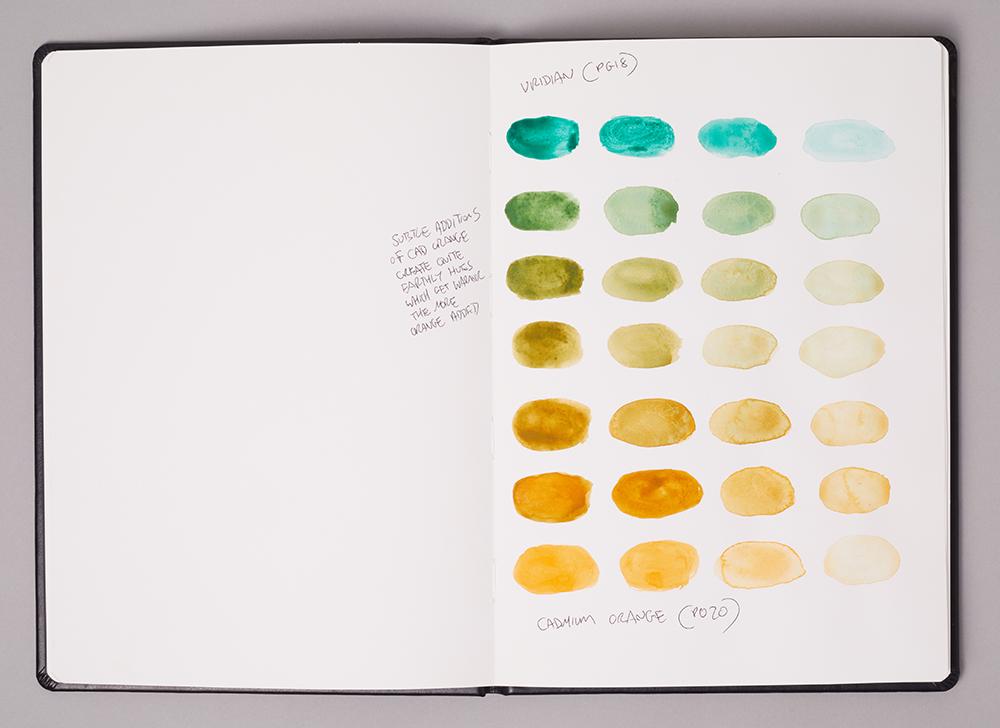 VIRIDIAN (PG18)
SUBTLE ADDITIONS
OF CAD ORANGE
CREATE QUITE
EARTHLY HUES
WHICH GET WARMER
THE MORE
ORANGE ADDED
CADMIUM ORANGE (PO20)